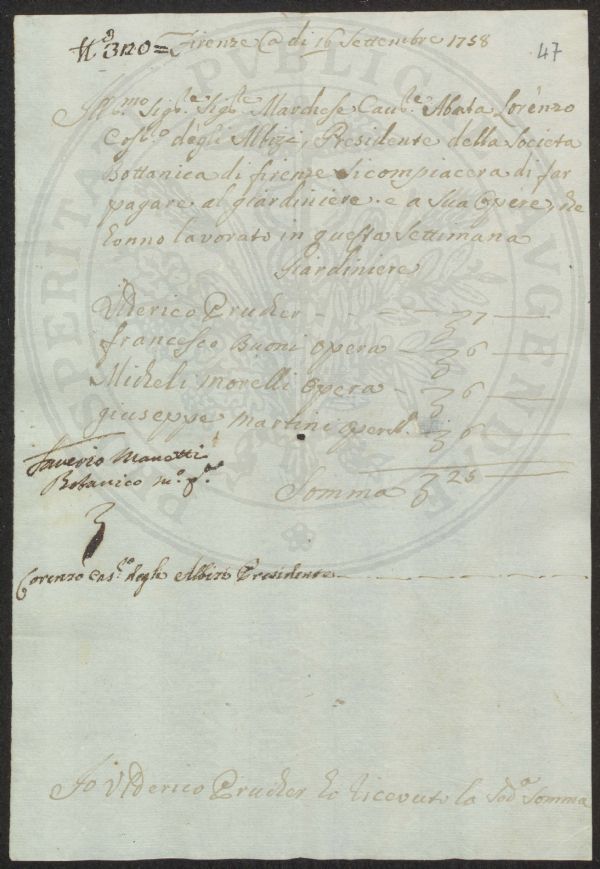 N.º 320 = Firenze A di 16 Settembre 1758
47
Ill.mo Sig.re Sig.re Marchese Cav.re Abate Lorenzo
Cas.o degli Albizi, Presidente della Societa
Bottanica di firenze Si compiacera di far
pagare al giardiniere e a Sua Opere, che
hanno lavorato in questa Settimana
Giardiniere
Vlderico Prucher - - - 7
francesco Buoni opera - 6
Micheli morelli opera - 6
giuseppe martini opera - 6
Somma 25
Saverio Manetti
Botanico m.o p.a
Lorenzo Cas.o degli Albizi Presidente
Io Vlderico Prucher ho ricevuto la Sod.a Somma
PROSPERITATI PVBLICAE AVGENDAE